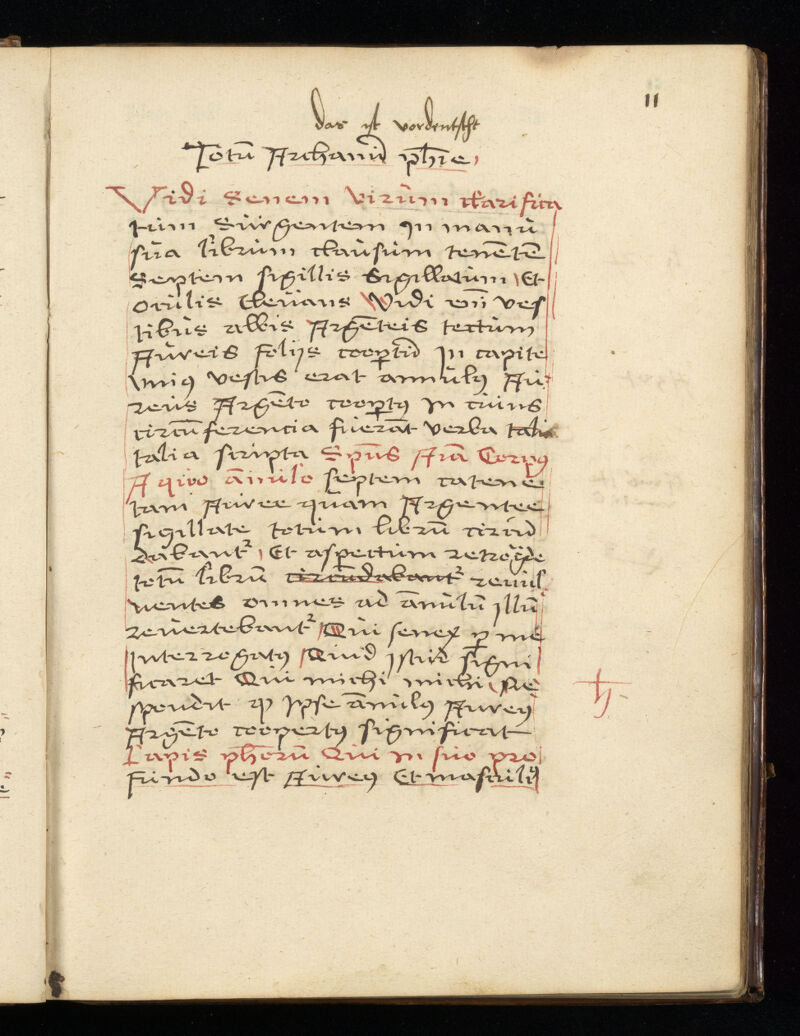 11
das ist vordeutscht
Totū Archanū phīe,
Vidi Senem Virum clarifica
tum Surgentem In manu
sua librum clausum tenētē
Septem sigillis Sigillatum Et
Oculis Elevans Vidi eūm ves
tibus albis Argēteis tectum
Aureis foliis coopertū In capite
Vnius vestis erat annulus Au
reus Argēto coopertus in cuius
circūferencia fuerāt verba talia
talia scripta Spūs Aīa Corpus
A quo āmulo septem catene
tam Auree quam Argentee
sigillate totum librū circūd
dabant Et aspectum retro
totū librū circūdabant revol
ventes omnes ad ānulū illū
revertebant Qui senex per me
Interrogatus Quid Istud signi
ficaret Qui michi michi Re
spondit qɜ Ipse ānulus Aureus
Argēto coopertus significat
Lapis phōrū Qui in suo pro
fundo est Aureus Et masculus
♄